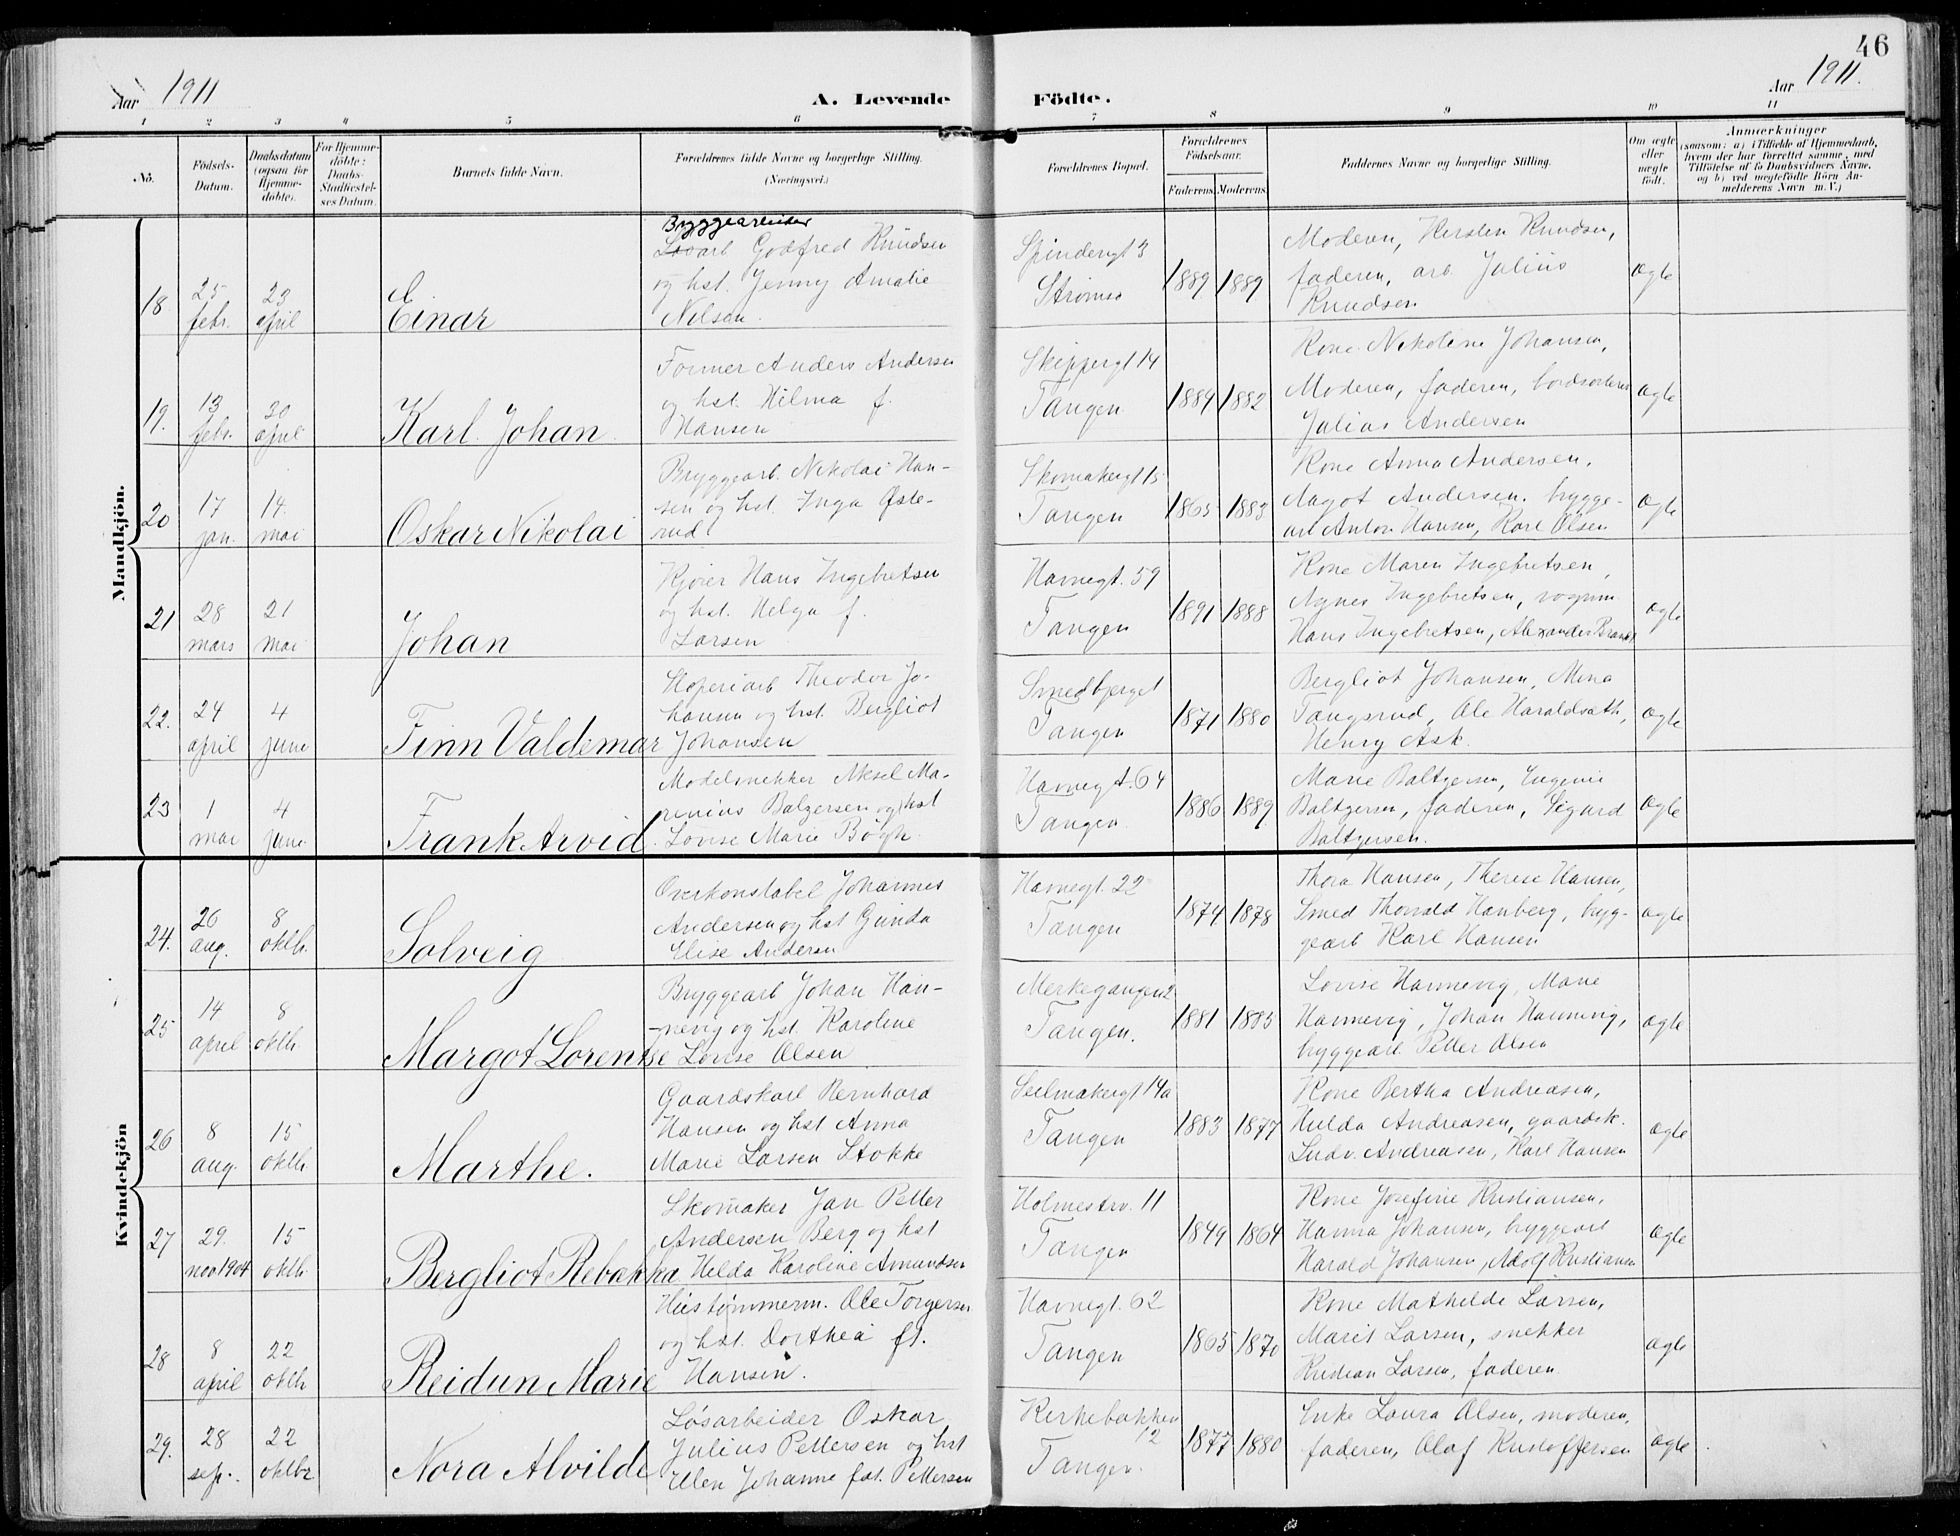 46
Aar 1911
A. Levende Födte.
Aar 1911.
1 2 3 4 5 6 7 8 9 10 11
No.
Födsels-
Datum.
Daabsdatum
(ogsaa for
Hjemme-
döbte).
For Hjemme-
döbte:
Daabs-
Stadfæstel-
ses Datum.
Barnets fulde Navn.
Forældrenes fulde Navne og borgerlige Stilling.
(Næringsvei.)
Forældrenes Bopæl.
Forældrenes
Födselsaar.
Faderens. Moderens.
Faddernes Navne og borgerlige Stilling.
Om ægte
eller
uægte
födt.
Anmærkninger
(saasom: a) i Tilfælde af Hjemmedaab,
hvem der har forrettet samme, med
Tilföielse af to Daabsvidners Navne,
og b) ved uægtefödte Börn An-
melderens Navn m. V.)
Mandkjön.
18.
25
febr.
23
april
Einar
Byggearbeider
Løsarb Godfred Knudsen
og hst. Jenny Amalie
Nilsen.
Spinderigt 3
Strømsø
1889 1889
Moderen, Kersten Knudsen,
faderen, arb. Julius
Knudsen
ægte
19.
13
febr.
30
april
Karl Johan
Former Anders Andersen
og hst. Hilma f.
Hansen
Skippergt 14
Tangen
1884 1882
Kone Nikoline Johansen,
Moderen, faderen, bordsorterer
Julius Andersen
ægte
20
17
jan.
14.
mai
Oskar Nikolai
Bryggearb. Nikolai Han-
sen og hst. Inga Øste-
rud
Skomakergt 15
Tangen
1865 1883
Kone Anna Andersen,
Aagot Andersen, brygge-
arb Anton Hansen, Karl Olsen
ægte
21
28
mars
21
mai
Johan
Kjører Hans Ingebretsen
og hst. Helga f.
Larsen
Havnegt. 59
Tangen
1891 1888
Kone Maren Ingebretsen,
Agnes Ingebretsen, vognm
Hans Ingebretsen, Alexander Brandt
ægte
22.
24
april
4
june
Finn Valdemar
Støperiarb Theodor Jo-
hansen og hst. Bergliot
Johansen
Smedbjerget
Tangen
1871 1880
Bergliot Johansen, Mina
Tangsrud, Ole Haraldsæth,
Henry Ask.
ægte
23
1
mai
4
june
Frank Arvid
Modelsnekker Aksel Ma-
renius Balzersen og hst
Lovise Marie Bögh.
Havnegt. 64
Tangen
1886 1889
Marie Baltzersen, Eugenie
Baltzersen, faderen, Sigurd
Baltzersen.
ægte
Kvindekjön
24.
26
aug.
8
oktb.
Solveig
Overkonstabel Johannes
Andersen og hst Gunda
Elise Andersen
Havnegt. 22
Tangen
1874 1878
Thora Hansen, Therese Hansen,
Smed Thorvald Hanberg, bryg-
gearb Karl Hansen
ægte
25
14
april
8
oktb.
Margot Lorentse
Bryggearb Johan Han-
nevig og hst. Karoline
Lovise Olsen
Merkegangen 2
Tangen.
1881 1885
Lovise Hannevig, Marie
Hannevig, Johan Hannevig,
bryggearb. Petter Olsen
ægte
26
8
aug.
15
oktb.
Marthe.
Gaardskarl Bernhard
Hansen og hst Anna
Marie Larsen Stokke
Seilmakergt 14a
Tangen
1883 1877
Kone Bertha Andreasen,
Hulda Andreasen, gaardsk.
Ludv. Andreasen, Karl Hansen
ægte
27
29.
nov 1904
15
oktb.
Bergliot Rebakka
Skomaker Jan Petter
Andersen Berg og hst
Helda Karoline Amundsen
Holmestrv. 11
Tangen
1849 1864
Kone Josefine Kristiansen,
Hanna Johansen, bryggearb
Harald Johansen, Adolf Kristiansen
ægte
28
8
april
22
oktb
Reidun Marie
Hustømmerm. Ole Torgersen
og hst. Dorthea ft.
Hansen.
Havnegt. 62
Tangen
1865 1870
Kone Mathilde Larsen,
Marit Larsen, snekker
Kristian Larsen, faderen
ægte
29.
28
sep.
22
oktbr
Nora Alvilde
Løsarbeider Oskar
Julius Pettersen og hst
Ellen Johanne fst. Pettersen
Kirkebakken
12
Tangen.
1877 1880
Enke Laura Olsen, moderen,
faderen, Olaf Kristoffersen
ægte